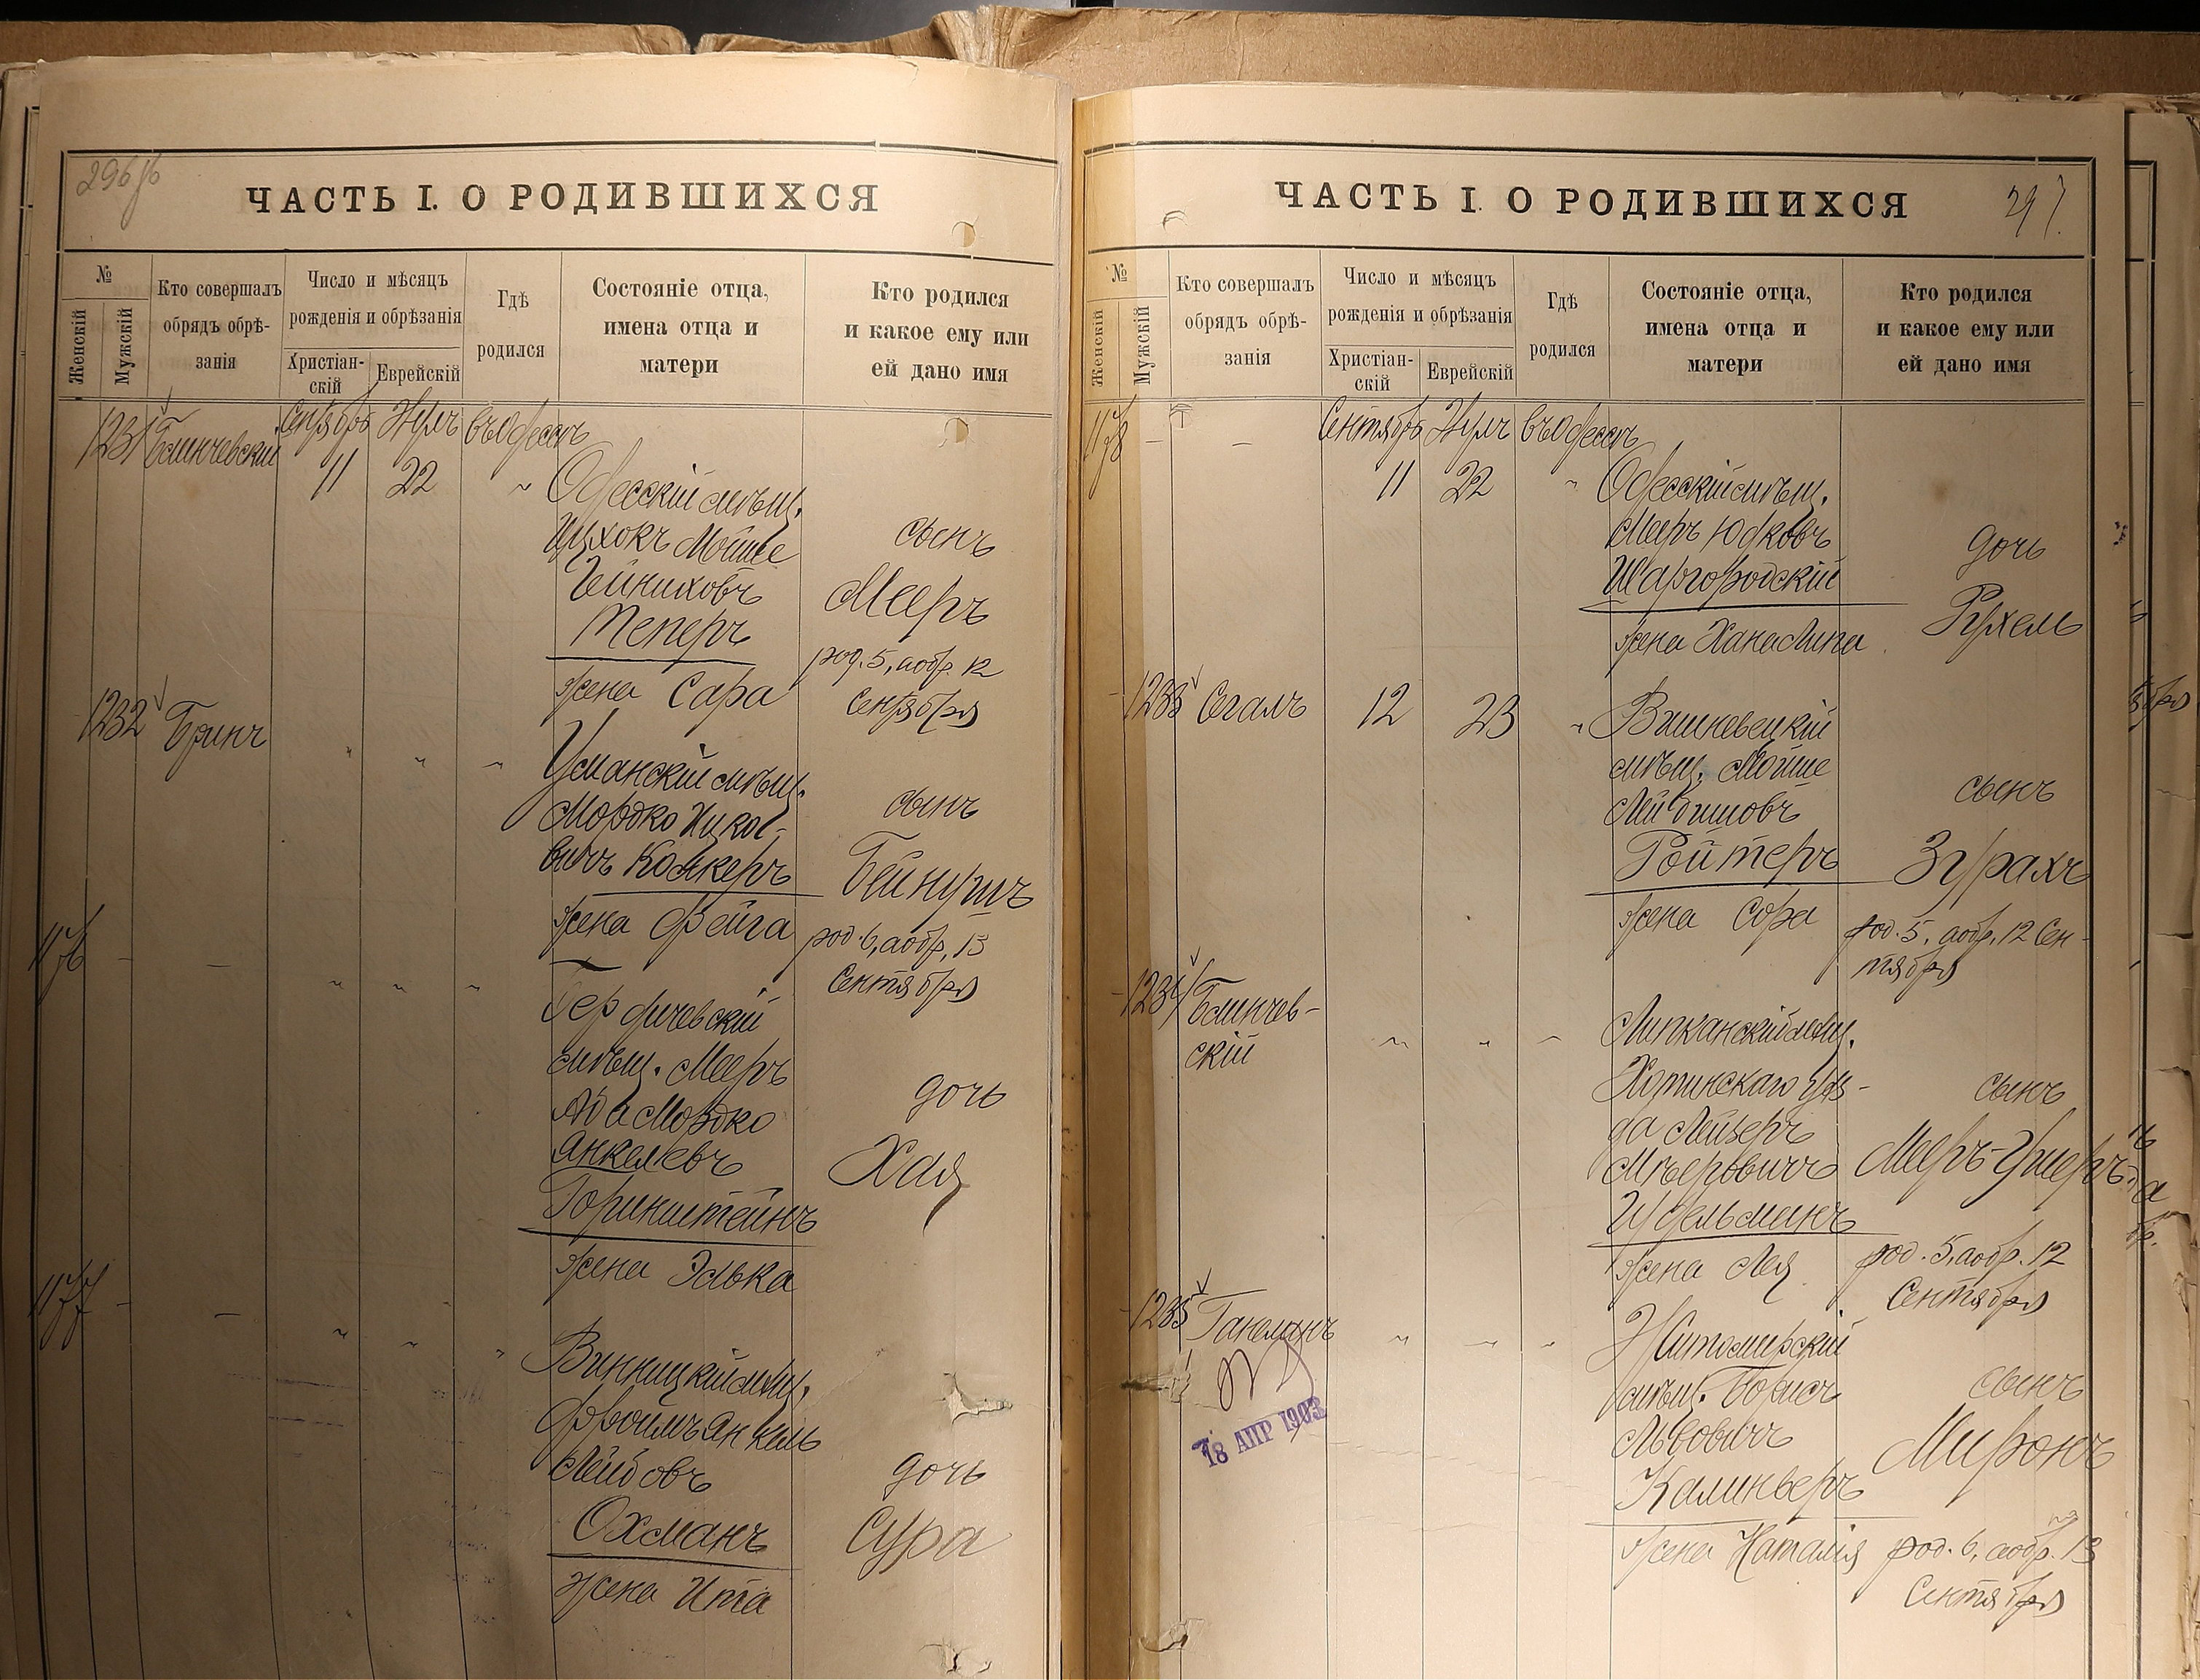 296 об
ЧАСТЬ I. О РОДИВШИХСЯ
№
Женскій
Мужскій
Кто совершалъ
обрядъ обрѣ-
занія
Число и мѣсяцъ
рожденія и обрѣзанія
Христіан-
скій
Еврейскій
Гдѣ
родился
Состояніе отца,
имена отца и
матери
Кто родился
и какое ему или
ей дано имя
1231 Блинчевскій Сентябрь Элулъ въ Одессѣ
11 22 " Одесскій мѣщ.
Ицхокъ Мойше
сынъ
Мееръ
Теперъ
род. 5, а обр. 12
жена Сара
Сентября
1232 Бринъ
" " " Уманскій мѣщ.
Мордко Ицко-
сынъ
вичъ Компкеръ
Бейнушъ
жена Фейга
род. 6, а обр. 13
Сентября
1176 — —
" " " Бердичевскій
мѣщ. Мееръ
Аба Мордко
дочь
Янкелевъ
Хая
Горинштейнъ
жена Элька
1177 — —
" " " Винницкій мѣщ.
Фроимъ Янкель
Лейбовъ
дочь
Охманъ
Сура
жена Ита
297.
ЧАСТЬ I. О РОДИВШИХСЯ
№
Женскій
Мужскій
Кто совершалъ
обрядъ обрѣ-
занія
Число и мѣсяцъ
рожденія и обрѣзанія
Христіан-
скій
Еврейскій
Гдѣ
родился
Состояніе отца,
имена отца и
матери
Кто родился
и какое ему или
ей дано имя
1178 — — Сентябрь Элулъ въ Одессѣ
11 22 " Одесскій мѣщ.
Мееръ Юдковъ
дочь
Шаргородскій
Рухель
жена Хана Липа
1233 Сегалъ 12 23 " Вишневецкій
мѣщ. Мойше
сынъ
Лейбишовъ
Ройтеръ
Зурахъ
жена Сора
род. 5, а обр. 12 Сен-
тября
1234 Блинчев-
скій
" " " Липканскій мѣщ.
Хотинскаго уѣз-
сынъ
да Лейзеръ
Мееръ-Ушеръ
Мееровичъ
Шдельманъ
род. 5, а обр. 12
жена Лея
Сентября
1235 Ганелинъ
" — " Житомирскій
мѣщ. Борисъ
сынъ
Львовичъ
Миронъ
Калиньверъ
жена Наталія
род. 6, а обр. 13
Сентября
18 АПР 1903